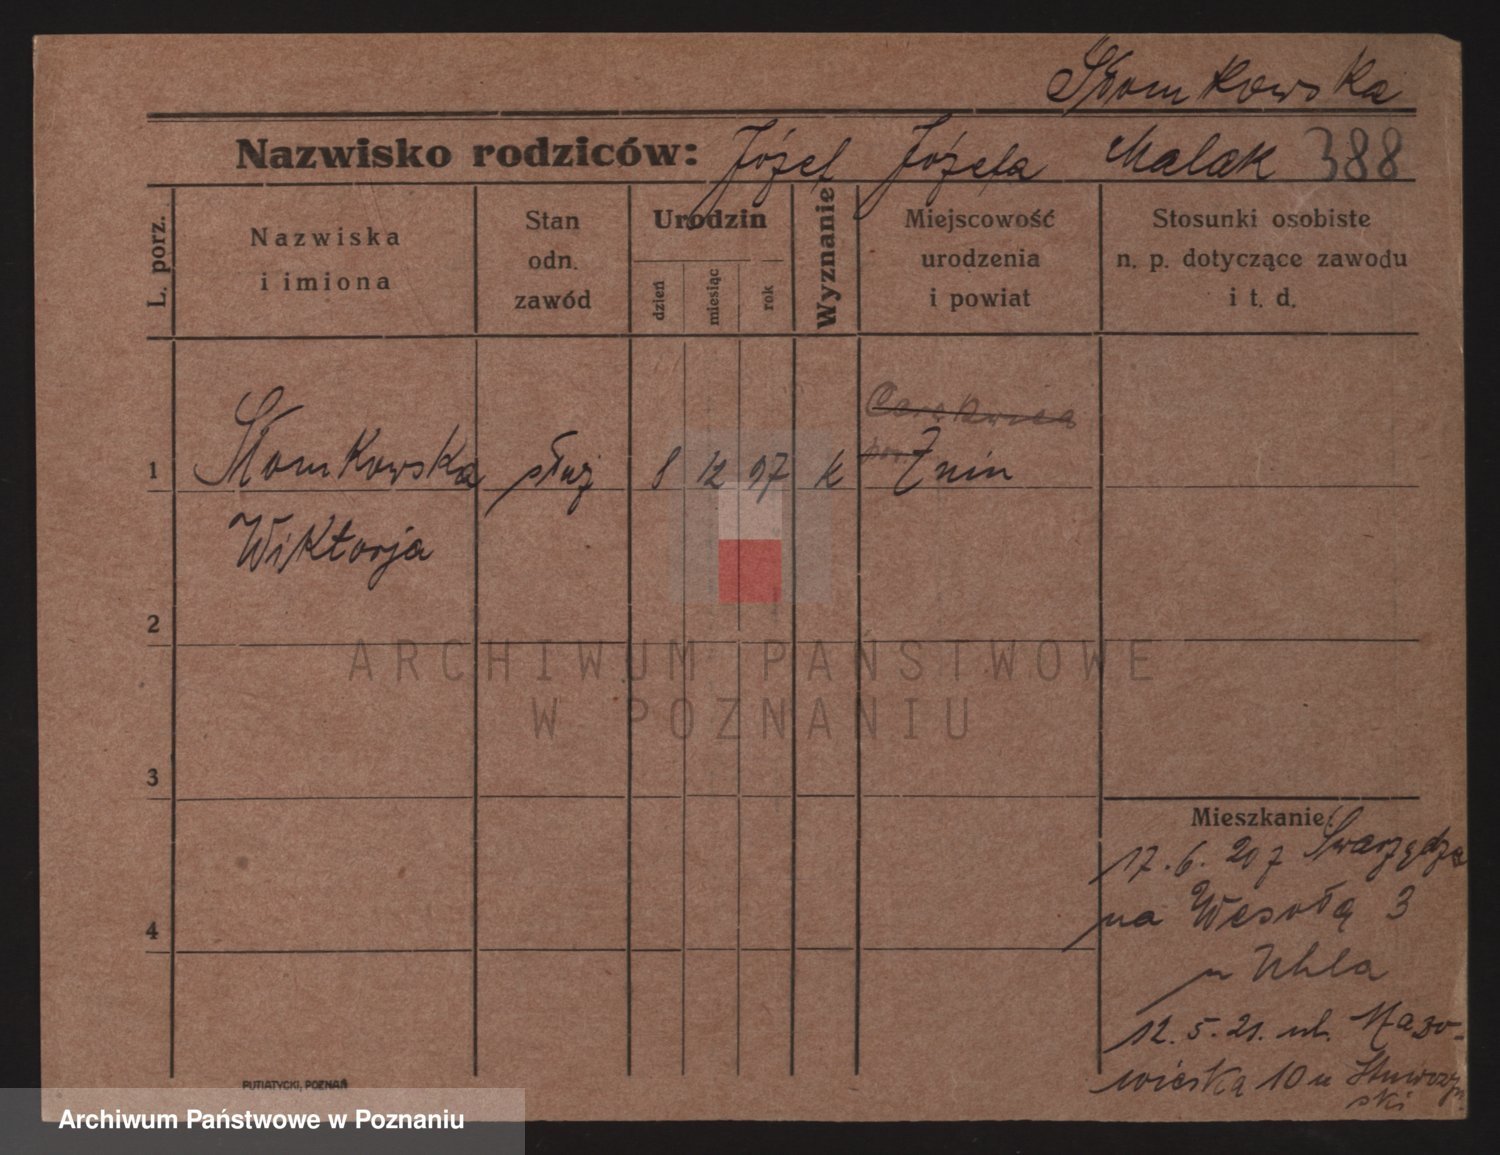 Słomkowska
Nazwisko rodziców: Józef Józefa Malak 388
L. porz.
Nazwiska
i imiona
Stan
odn.
zawód
Urodzin
dzień
miesiąc
rok
Wyznanie
Miejscowość
urodzenia
i powiat
Stosunki osobiste
n. p. dotyczące zawodu
i t. d.
1 Słomkowska służ 8 12 97 k Żnin
Wiktorja
2
3
4
Mieszkanie:
17. 6. 20 z Swarzędza
na Wesołą 3
u Uhla
12. 5. 21. ul. Mazo-
wiecka 10 u
ski
PUTIATYCKI, POZNAŃ
ARCHIWUM PAŃSTWOWE
W POZNANIU
Archiwum Państwowe w Poznaniu